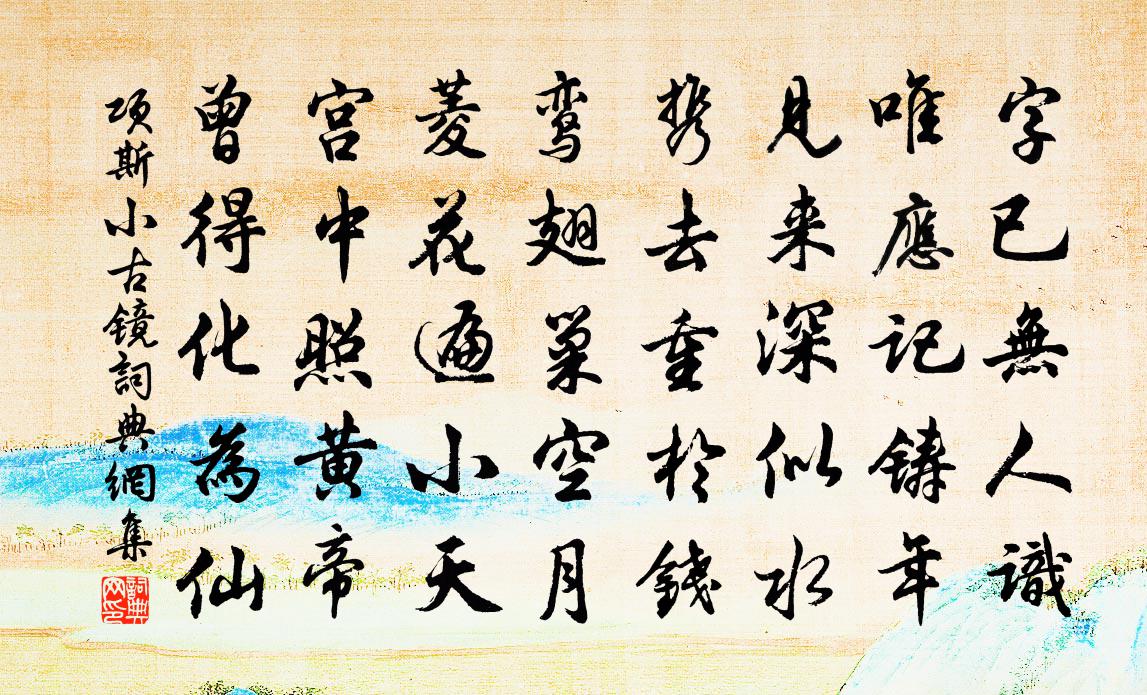 字已無人識
唯應記鑄年
見来深似水
携去重於錢
鸾翅巢空月
菱花遍小天
宫中照黄帝
曾得化為仙
项斯小古镜詞典網集
詞典网印